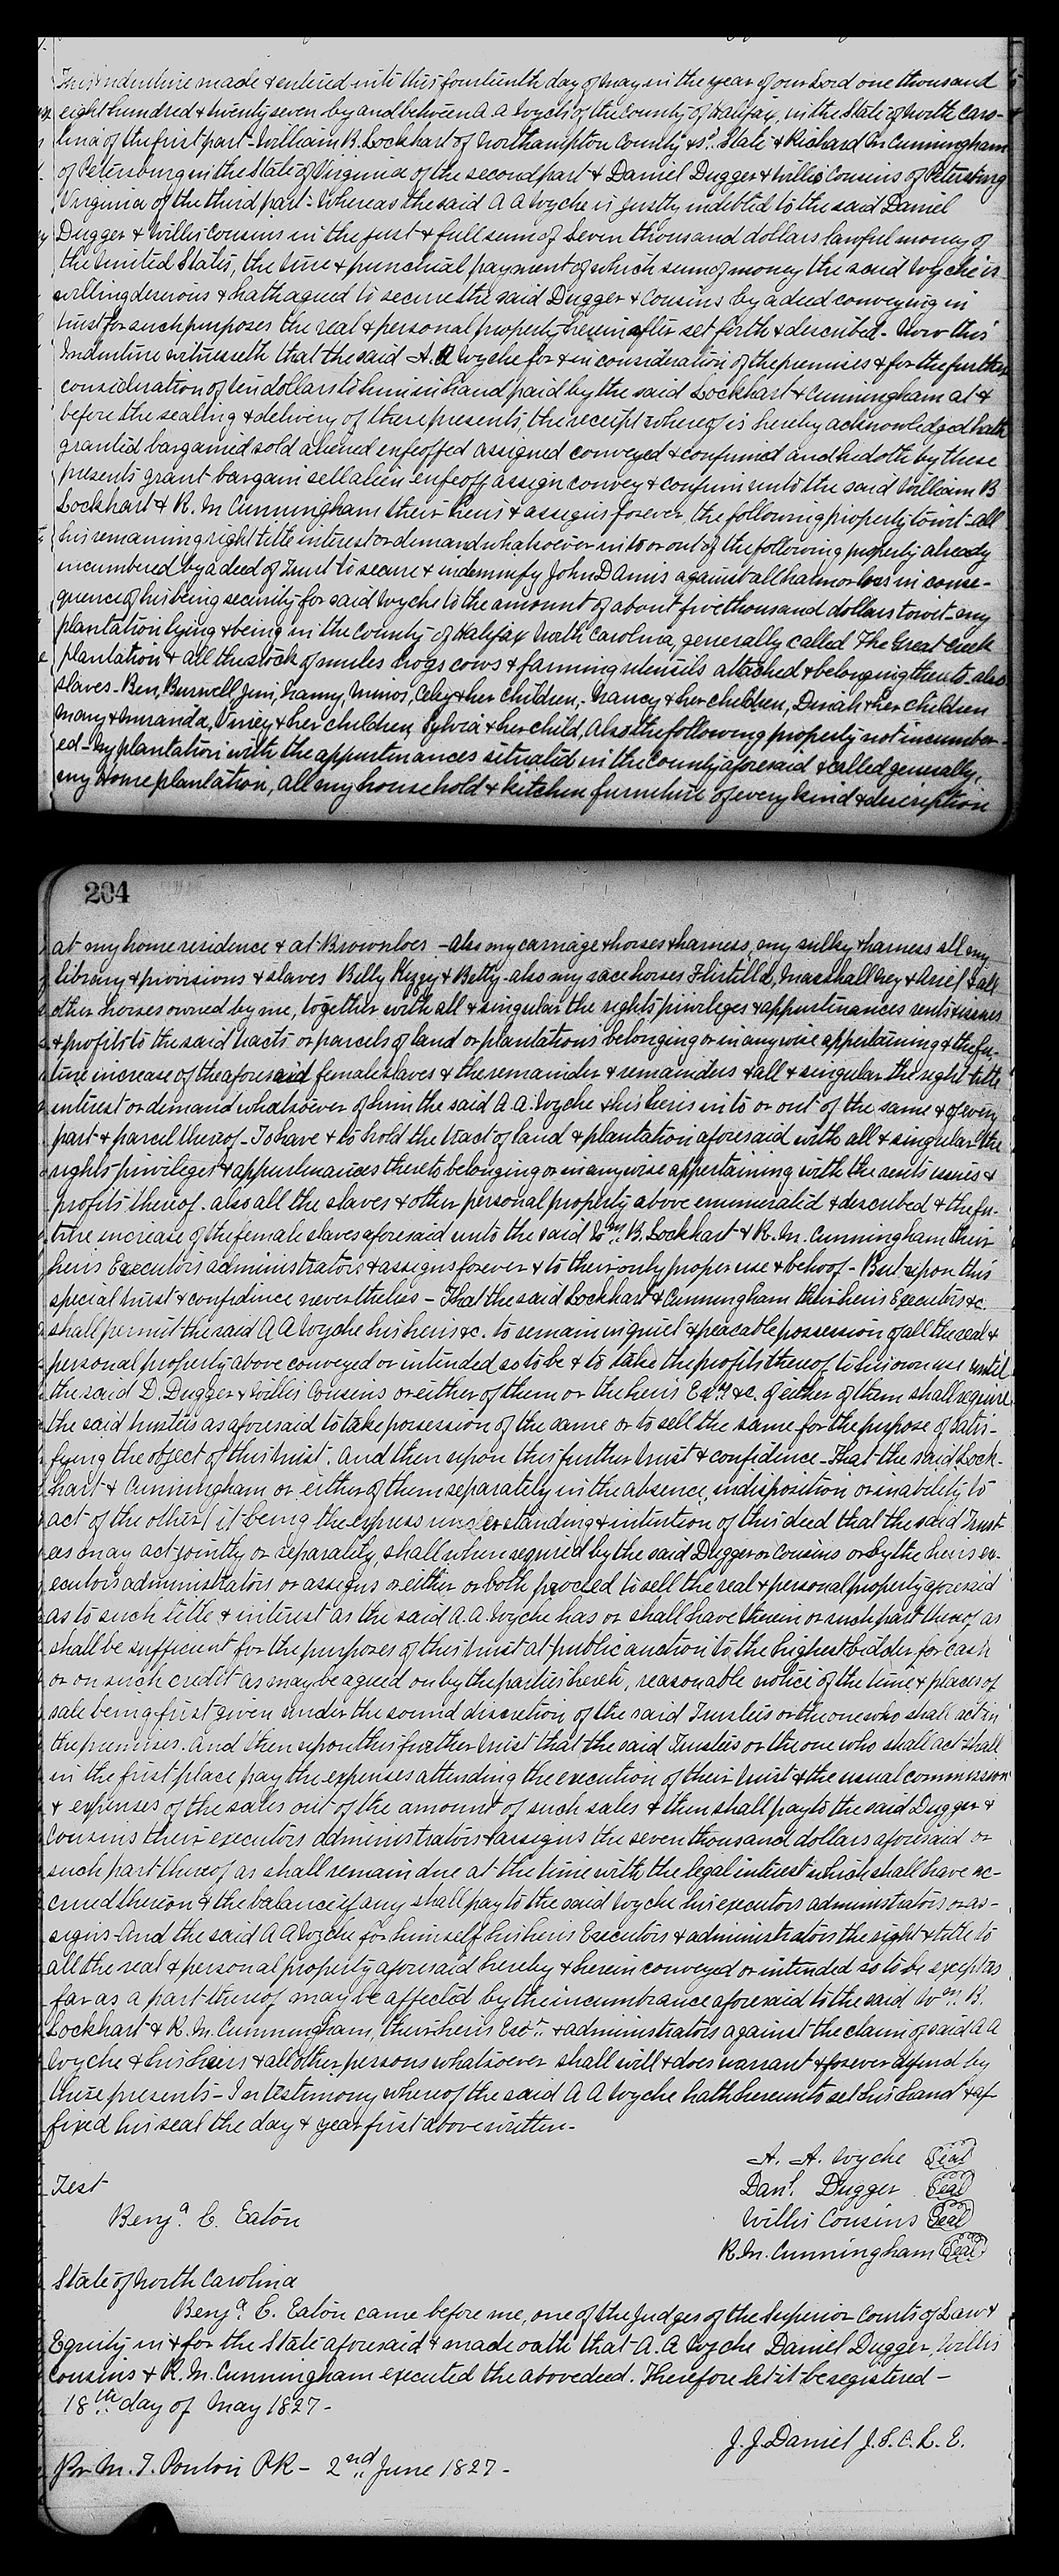 This indenture made & entered into this fourteenth day of May in the year of our Lord one thousand
eight hundred & twenty seven by and between A A Wyche of the County of Halifax, in the State of North Caro-
lina of the first part - William B. Lockhart of Northampton County & sd. State & Richard M Cunningham
of Petersburg in the State of Virginia of the second part & Daniel Dugger & Willis Cousins of Petersburg
Virginia of the third part - Whereas the said A A Wyche is justly indebted to the said Daniel
Dugger & Willis Cousins in the just & full sum of Seven thousand dollars lawful money of
the United States, the true & punctual payment of which sum of money the said Wyche is
willing desirous & hath agreed to secure the said Dugger & Cousins by a deed conveying in
trust for such purposes the real & personal property hereinafter set forth & described - Now this
Indenture witnesseth that the said A. A Wyche for & in consideration of the premises & for the further
consideration of ten dollars to him in hand paid by the said Lockhart & Cunningham at &
before the sealing & delivery of these presents, the receipt whereof is hereby acknowledged hath
granted bargained sold aliened enfeoffed assigned conveyed & confirmed and he doth by these
presents grant bargain sell alien enfeoff assign convey & confirm unto the said William B
Lockhart & R. M Cunningham their heirs & assigns forever, the following property to wit - all
his remaining right title interest or demand whatsoever in to or out of the following property already
incumbered by a deed of Trust to secure & indemnify John D Amis against all harm or loss in conse-
quence of his being security for said Wyche to the amount of about five thousand dollars to wit - my
plantation lying & being in the County of Halifax North Carolina, generally called The Great Creek
plantation & all the stock of mules hogs cows & farming utensils attached & belonging thereto - also
slaves - Ben, Burwell, Jim, Nanny, Minos, Celey & her children, - Nancy & her children, Dinah & her children
Mary & Miranda, Viney & her children, Sylvia & her child, Also the following property not incumber-
ed - My plantation with the appurtenances situated in the County aforesaid & called generally,
my Home plantation, all my household & kitchen furniture of every kind & description
204
at my home residence & at Brownloes - also my carriage & horses & harness, my sulky & harness all my
library & provisions & slaves Billy Kizzy & Betty - also my race horses Flirtilla, Marshall Ney & Ariel & all
other horses owned by me, together with all & singular the rights privileges & appurtenances rents issues
& profits to the said tracts or parcels of land or plantations belonging or in any wise appertaining & the fu-
ture increase of the aforesaid female slaves & the remainder & remainders & all & singular the right title
interest or demand whatsoever of him the said A. A. Wyche & his heirs in to or out of the same & of every
part & parcel thereof - To have & to hold the tract of land & plantation aforesaid with all & singular the
rights privileges & appurtenances thereto belonging or in any wise appertaining with the rents issues &
profits thereof. also all the slaves & other personal property above enumerated & described & the fu-
ture increase of the female slaves aforesaid unto the said Wm. B. Lockhart & R. M. Cunningham their
heirs Executors administrators & assigns forever & to their only proper use & behoof - But upon this
special trust & confidence nevertheless - That the said Lockhart & Cunningham their heirs Executors &c.
shall permit the said A A Wyche his heirs &c. to remain in quiet & peacable possession of all the real &
personal property above conveyed or intended so to be & to take the profits thereof to his own use until
the said D. Dugger & Willis Cousins or either of them or the heirs Exrs. &c. of either of them shall require
the said trustees as aforesaid to take possession of the same or to sell the same for the purpose of satis-
fying the object of this trust. And then upon this further trust & confidence - That the said Lock-
hart & Cunningham or either of them separately in the absence, indisposition or inability to
act of the other (it being the express understanding & intention of this deed that the said Trust-
ees may act jointly or separately, shall when required by the said Dugger or Cousins or by the heirs ex-
ecutors administrators or assigns or either or both proceed to sell the real & personal property aforesaid
as to such title & interest as the said A. A. Wyche has or shall have therein or such part thereof as
shall be sufficient for the purposes of this trust at public auction to the highest bidder for cash
or on such credit as may be agreed on by the parties hereto, reasonable notice of the time & places of
sale being first given under the sound discretion of the said Trustees or the one who shall act in
the premises. And then upon this further trust that the said Trustees or the one who shall act shall
in the first place pay the expenses attending the execution of their trust & the usual commission
& expenses of the sales out of the amount of such sales & then shall pay to the said Dugger &
Cousins their executors administrators & assigns the seven thousand dollars aforesaid or
such part thereof as shall remain due at the time with the legal interest which shall have ac-
crued thereon & the balance if any shall pay to the said Wyche his executors administrators or as-
signs - And the said A A Wyche for himself his heirs Executors & administrators the right & title to
all the real & personal property aforesaid hereby & herein conveyed or intended so to be except as
far as a part thereof may be affected by the incumbrance aforesaid to the said Wm. B.
Lockhart & R. M. Cunningham, their heirs Exors. & administrators against the claim of said A A
Wyche & his heirs & all other persons whatsoever shall will & does warrant & forever defend by
these presents - In testimony whereof the said A A Wyche hath hereunto set his hand & af-
fixed his seal the day & year first above written -
A. A. Wyche Seal
Test
Danl. Dugger Seal
Benja. C. Eaton
Willis Cousins Seal
R. M. Cunningham Seal
State of North Carolina
Benja. C. Eaton came before me, one of the Judges of the Superior Courts of Law &
Equity in & for the State aforesaid & made oath that A. A Wyche Daniel Dugger, Willis
Cousins & R. M. Cunningham executed the above deed. Therefore let it be registered -
18th day of May 1827 -
J. J. Daniel J. S. C. L. E.
Pr M. T. Ponton P R - 2nd June 1827 -